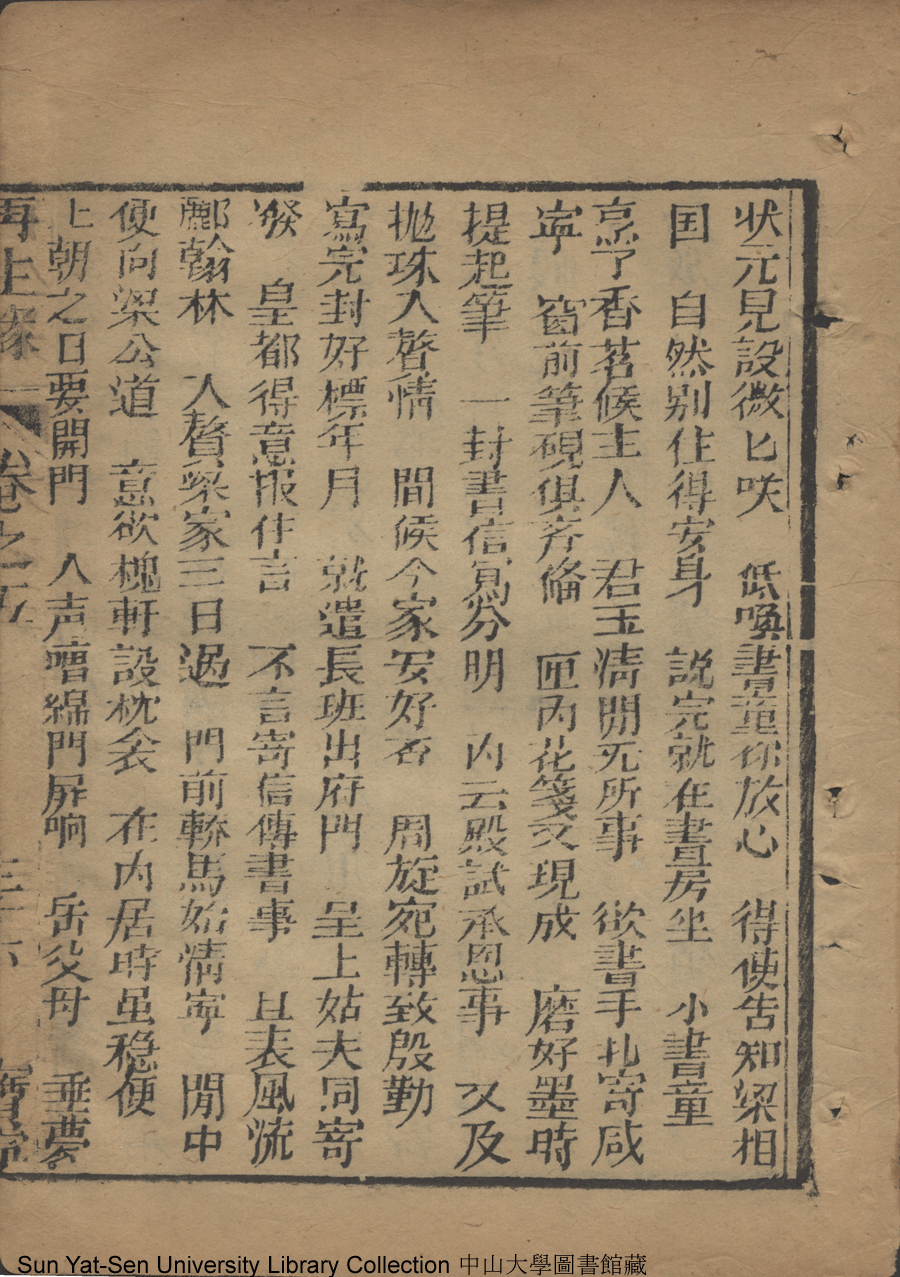 状元見設微匕咲　低喚書童你放心　得使告知梁相
国　自然别住得安身　説完就在書房坐　小書童
烹了香茗候主人　君玉淸閒无所事　欲書手扎寄咸
寜　窗前筆硯俱齐俻　匣内花箋又現成　磨好墨時
提起筆　一封書信冩分明　内云殿試承恩事　又及
抛珠入贅情　間候今家安好否　周旋宛轉致殷勤
寫完封好標年月　就遣長班出府門　呈上姑夫同寄
　皇都得意报佳言　不言寄信傳書事　且表風流
酈翰林　入贅梁家三日過　門前轎馬始清寧　閒中
便向梁公道　意欲槐軒設枕衾　在内居時虽穏便
上朝之日要開門　人声嘈　綿門屏响　岳父母　垂夢
再生緣　卷之五　三十六　堂
Sun Yat-Sen University Library Collection 中山大學圖書館藏